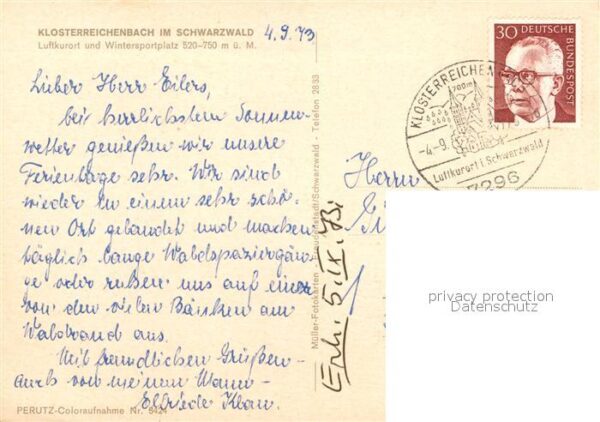 KLOSTERREICHENBACH IM SCHWARZWALD
Luftkurort und Wintersportplatz 520-750 m ü. M.
4.9.73
Lieber Herr Eilers,
bei herrlichstem Sonnen-
wetter genießen wir unsere
Ferientage sehr. Wir sind
wieder in einem sehr schö-
nen Ort gelandet und machen
täglich lange Waldspaziergän-
ge oder ruhen uns auf einer
von den vielen Bänken am
Waldrand aus.
Mit freundlichen Grüßen -
auch von meinem Mann -
Elfriede
PERUTZ-Coloraufnahme Nr. 6424
Müller-Fotokarten - Freudenstadt/Schwarzwald - Telefon 2833
Erh. 5.IX.73
Herrn
30 DEUTSCHE
BUNDESPOST
KLOSTERREICHEN
700m
-4.-9.
Luftkurort i. Schwarzwald
7296
privacy protection
Datenschutz